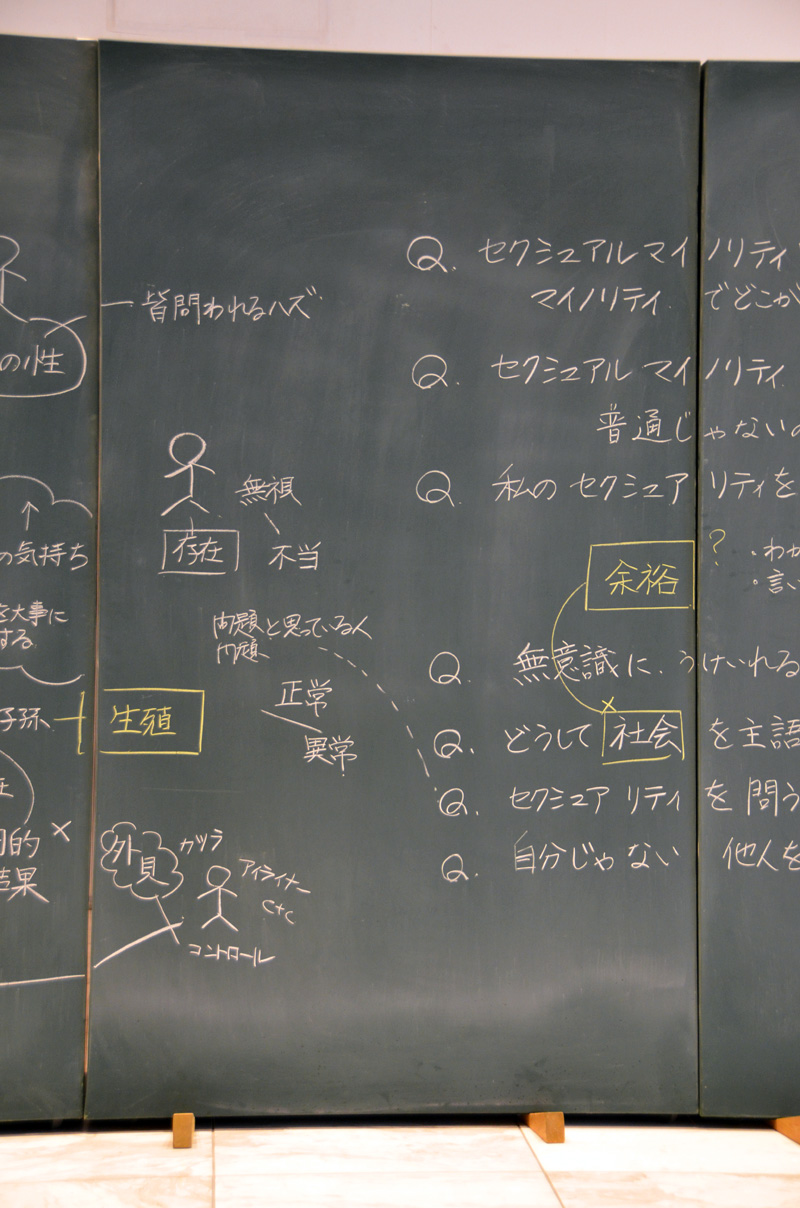 皆問われるハズ
の性
無視
存在
不当
の気持ち
を大事に
する
問題と思っている人
問題
正常
異常
子孫
生殖
的
結果
外見
カツラ
アイライナー
コントロール
Q. セクシュアルマイノリティ
マイノリティ. でどこが
Q. セクシュアルマイノリティ.
普通じゃないの
Q. 私のセクシュアリティを
余裕?
・わか
・言い
Q. 無意識に.うけいれる
Q. どうして社会を主語
Q. セクシュアリティを問う
Q. 自分じゃない 他人を